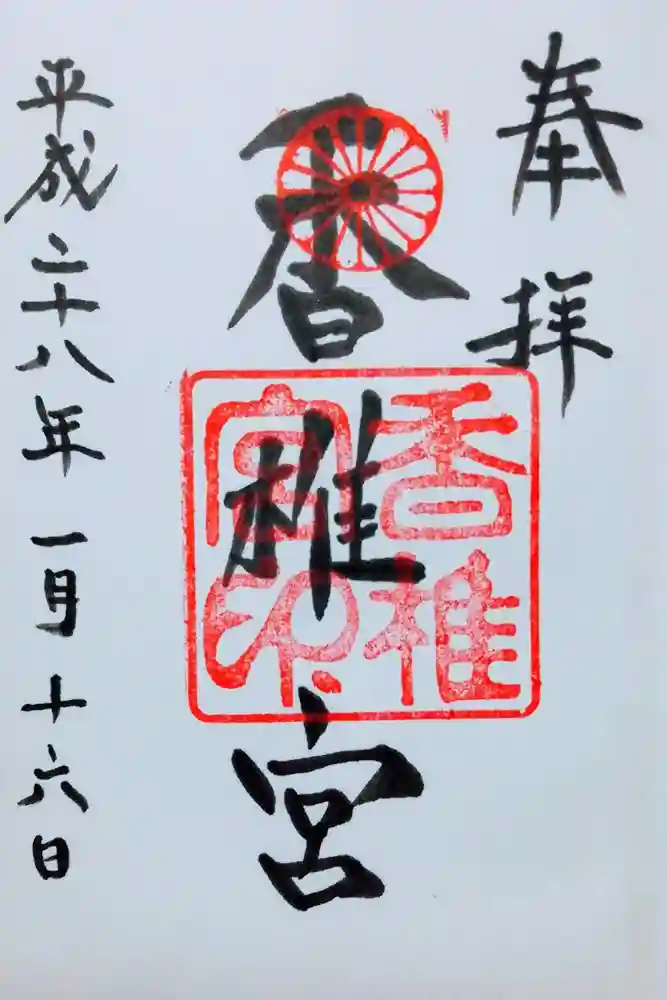 奉拝
香椎宮
香椎宮印
平成二十八年一月十六日